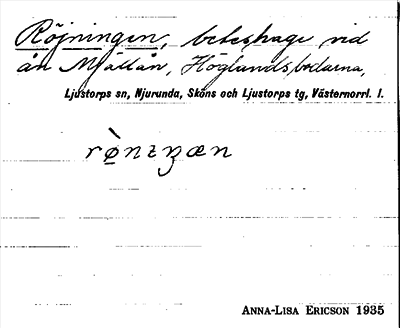 Röjningen, beteshage vid
ån Mjällån, Höglandsbodarna,
Ljustorps sn, Njurunda, Sköns och Ljustorps tg, Västernorrl. l.
ANNA-LISA ERICSON 1935